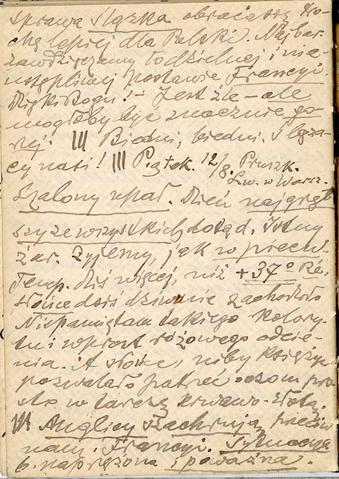 Sprawa Slązka obraca się tro-
chę lepiej dla Polski. Najbar.
zawdzięczamy to dzielnej i nie-
ustępliwej postawie Francyi.
Dzięki Bogu! – Jest źle – ale
mogłoby być znacznie go-
rzej. !!! Biedni, biedni Sląza-
cy nasi! !!! Piątek. 12/8. Pruszk.
Szalony upał. Dzień najgręt
szy ze wszystkich dotąd. Istny
żar. Żyjemy, jak w piecu.
Temp. dziś więcej, niż +37° Ré.
Słońce dziś dziwnie zachodziło
Nie pamiętam takiego kolory-
tu wprost różowego odcie-
nia. A słońce, niby księżyc
pozwalało patrzeć oczom pro-
sto w tarczę krwawo-złotą.
!!! Anglicy szachrują przeciw
nam i Francyi. Sytuacya
b. naprężona i poważna.